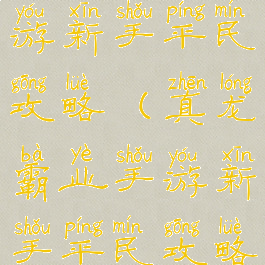 yóu xīn shǒu píng mín
游新手平民
gōng lüè zhēn lóng
攻略（真龙
bà yè shǒu yóu xīn
霸业手游新
shǒu píng mín gōng lüè
手平民攻略